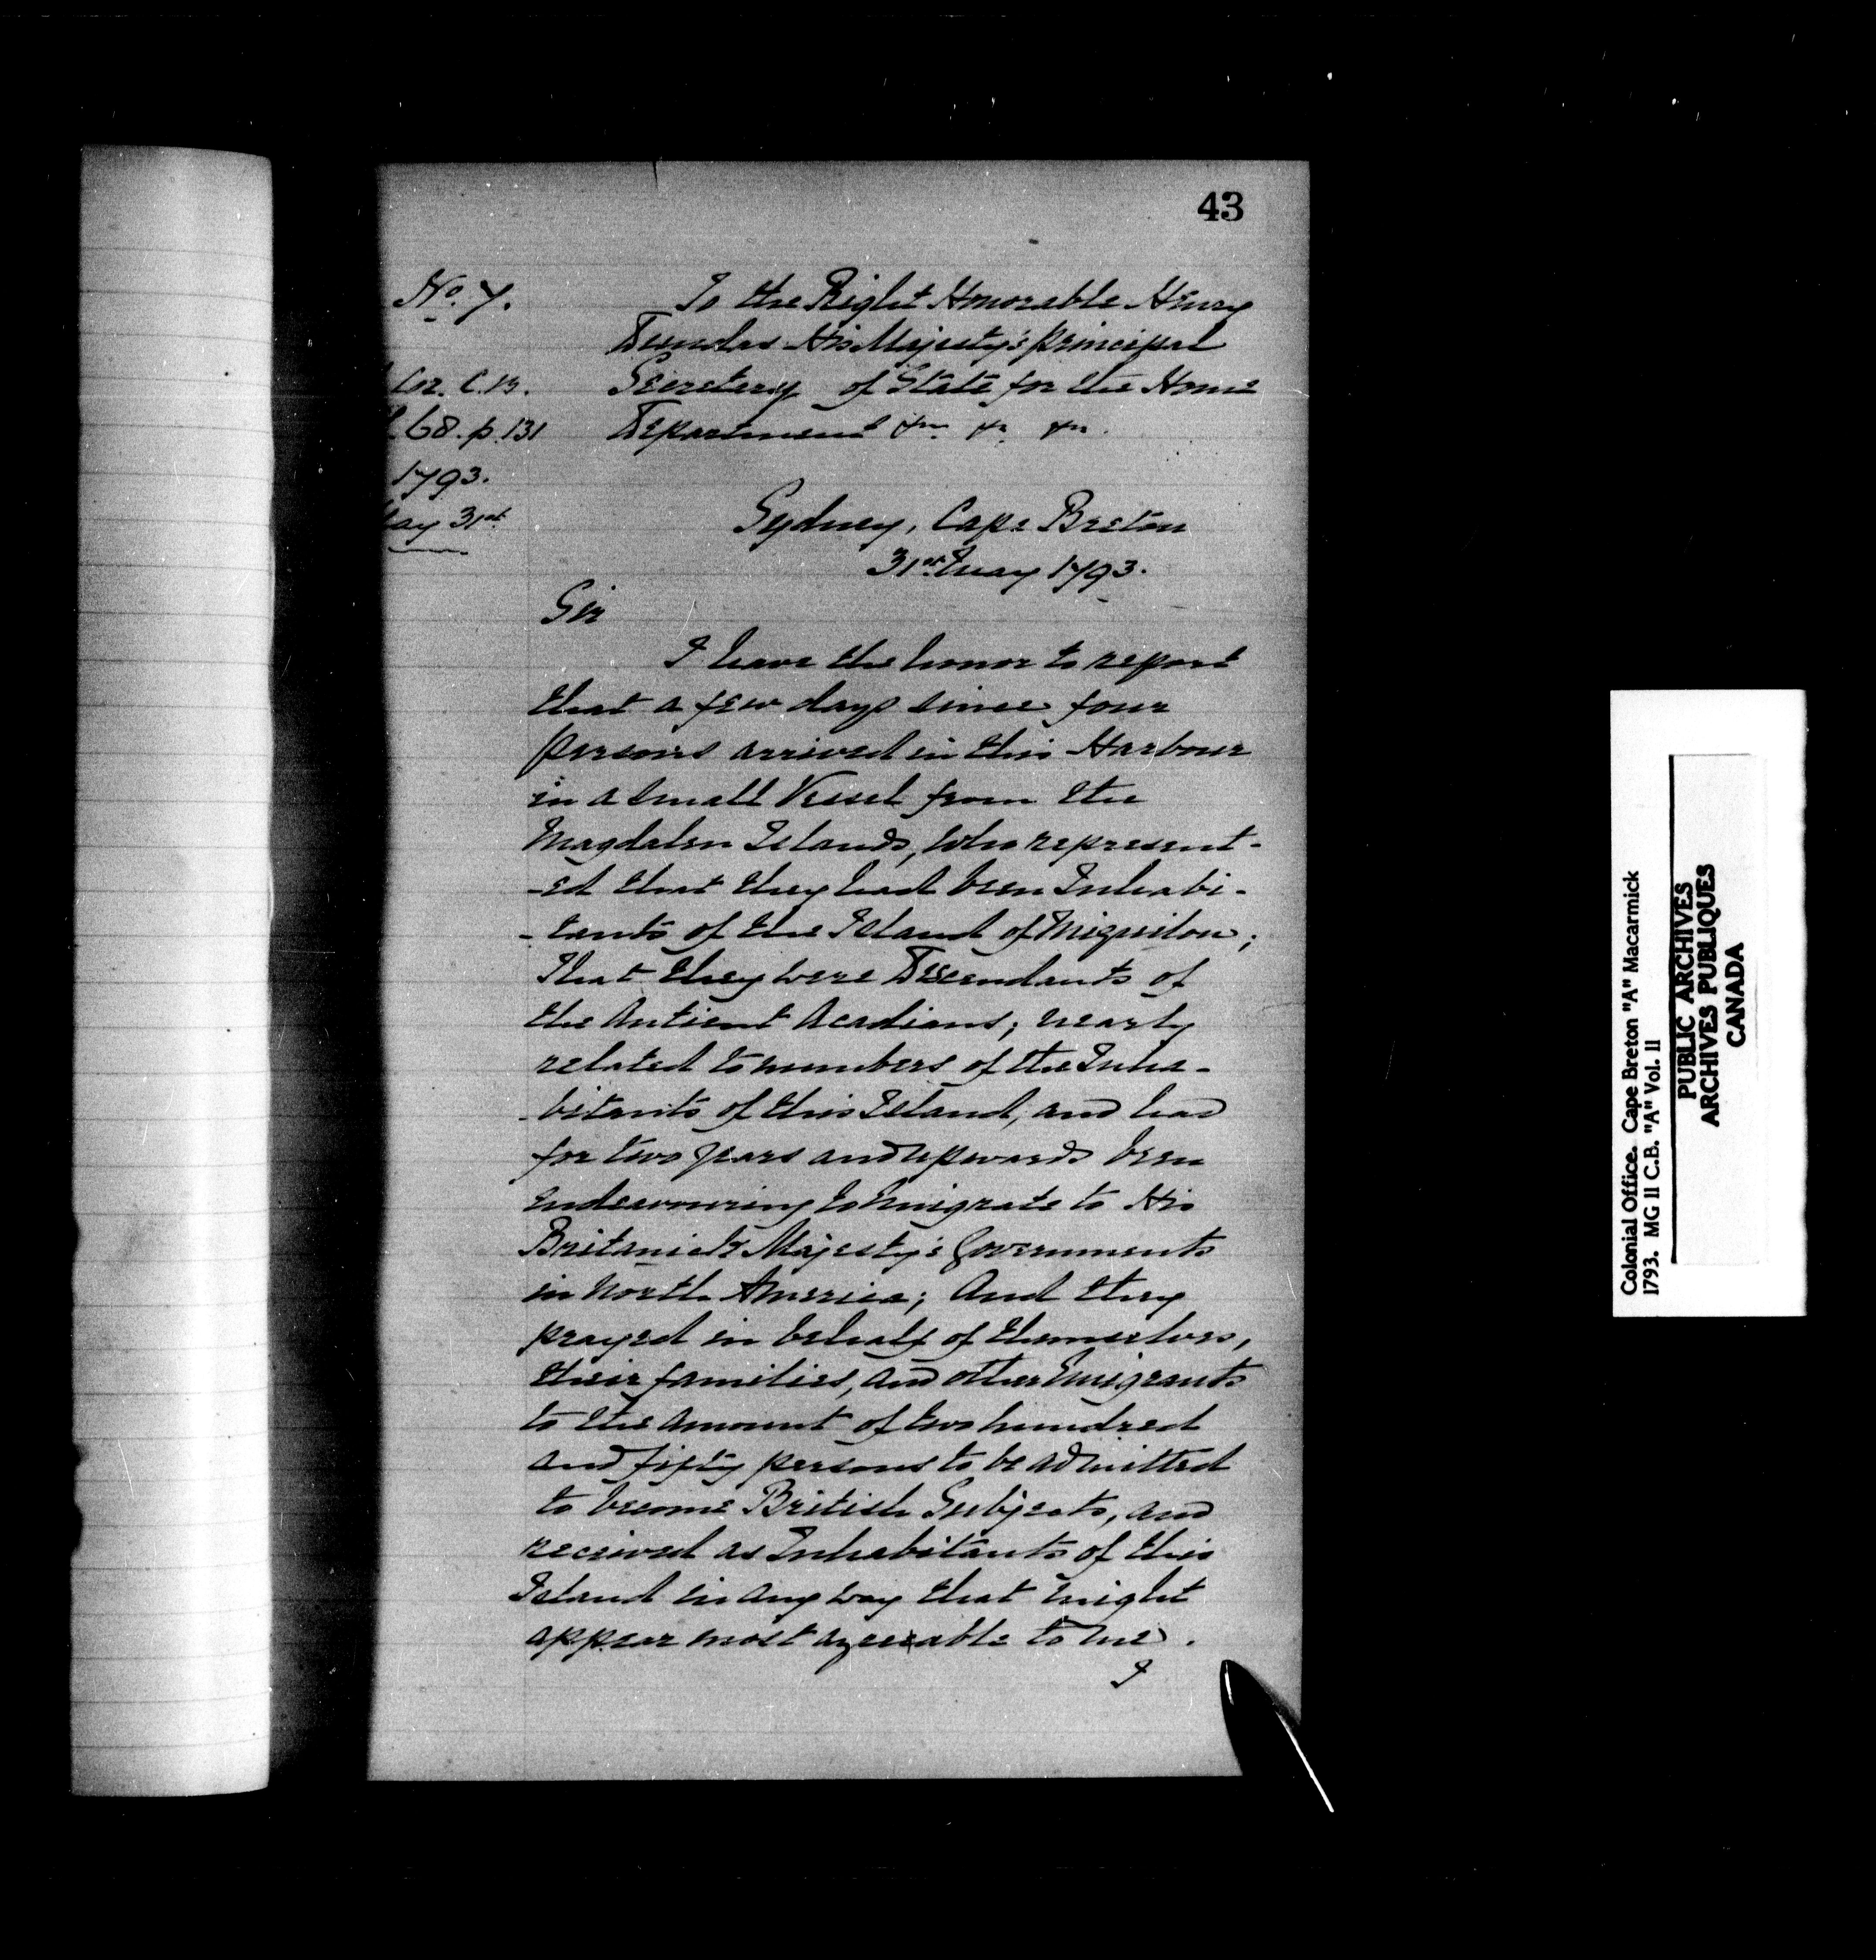 43
No. 7.
Cor. C.B.
68. p. 131
1793.
ay 31st
To the Right Honorable Henry
Dundas His Majesty's principal
Secretary of State for the Home
Department &c. &c. &c.
Sydney, Cape Breton
31st May 1793.
Sir
I have the honor to report
that a few days since four
persons arrived in this Harbour
in a small Vessel from the
Magdalen Islands, who represent-
-ed that they had been Inhabi-
-tants of the Island of Miquilon;
That they were Descendants of
the Antient Acadians; nearly
related to numbers of the Inha-
-bitants of this Island, and had
for two years and upwards been
endeavouring to Emigrate to His
Britanick Majesty's Governments
in North America; And they
prayed in behalf of themselves,
their families, and other Emigrants
to the amount of two hundred
and fifty persons to be admitted
to become British Subjects, and
received as Inhabitants of this
Island in any way that might
appear most agreeable to me.
I
Colonial Office. Cape Breton "A" Macarmick
1793. MG II C.B. "A" Vol. II
PUBLIC ARCHIVES
ARCHIVES PUBLIQUES
CANADA